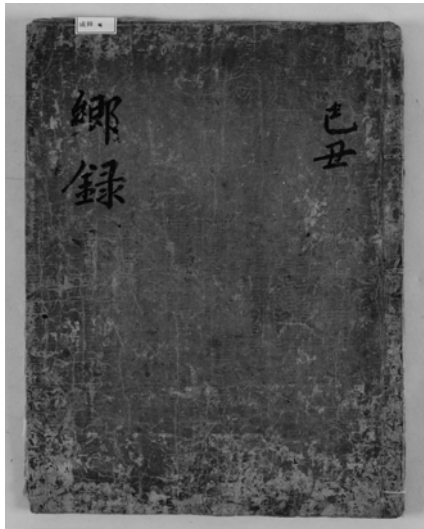 己丑
鄉錄